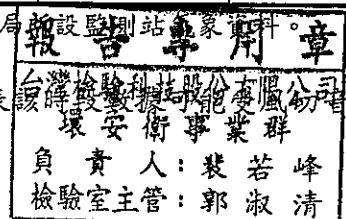 設監測站
報告專用章
台灣檢驗科技股份有限公司
環安衛事業群
負責人：裴若峰
檢驗室主管：郭淑清